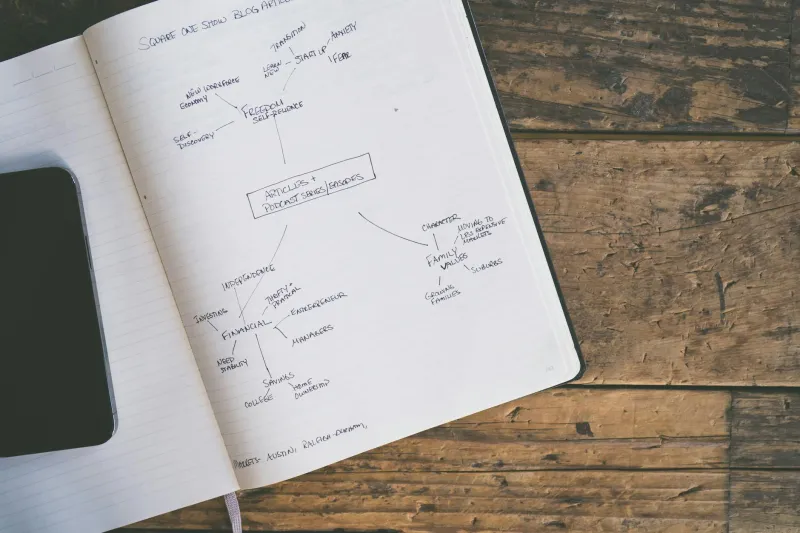 SQUARE ONE SHOW BLOG ARTICLE
TRANSITION
ANXIETY
LEARN
NEW
START UP
FEAR
NEW WORKFORCE
ECONOMY
FREEDOM
SELF-RELIENCE
SELF-
DISCOVERY
ARTICLES +
PODCAST SERIES/EPISODES
CHARACTER
MOVING TO
LESS EXPENSIVE
MARKETS
FAMILY
VALUES
SUBURBS
GROWING
FAMILIES
INDEPENDENCE
THRIFTY +
PRACTICAL
INVESTING
ENTREPRENEUR
FINANCIAL
MANAGERS
NEED
STABILITY
SAVINGS
HOME
OWNERSHIP
COLLEGE
MARKETS - AUSTIN, RALEIGH-DURHAM,